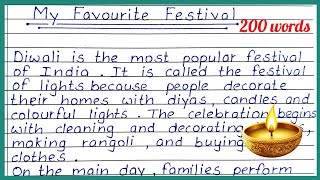 My Favourite Festival
200 words
Diwali is the most popular festival
of India. It is called the festival
of lights because people decorate
their homes with diyas, candles and
colourful lights. The celebration begins
with cleaning and decorating
making rangoli, and buying
clothes.
On the main day, families perform